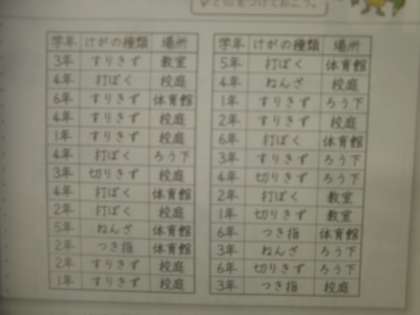 学年 けがの種類 場所
3年 すりきず 教室
4年 打ぼく 校庭
6年 すりきず 体育館
4年 すりきず 校庭
1年 すりきず 校庭
4年 打ぼく ろう下
3年 切りきず 校庭
4年 打ぼく 体育館
2年 打ぼく 校庭
5年 ねんざ 体育館
2年 つき指 体育館
2年 すりきず 校庭
1年 すりきず 校庭
学年 けがの種類 場所
5年 打ぼく 体育館
4年 ねんざ 校庭
1年 すりきず ろう下
2年 すりきず 校庭
6年 打ぼく 体育館
3年 すりきず ろう下
4年 切りきず ろう下
2年 打ぼく 教室
1年 切りきず 教室
6年 つき指 体育館
3年 ねんざ ろう下
6年 切りきず ろう下
3年 つき指 校庭